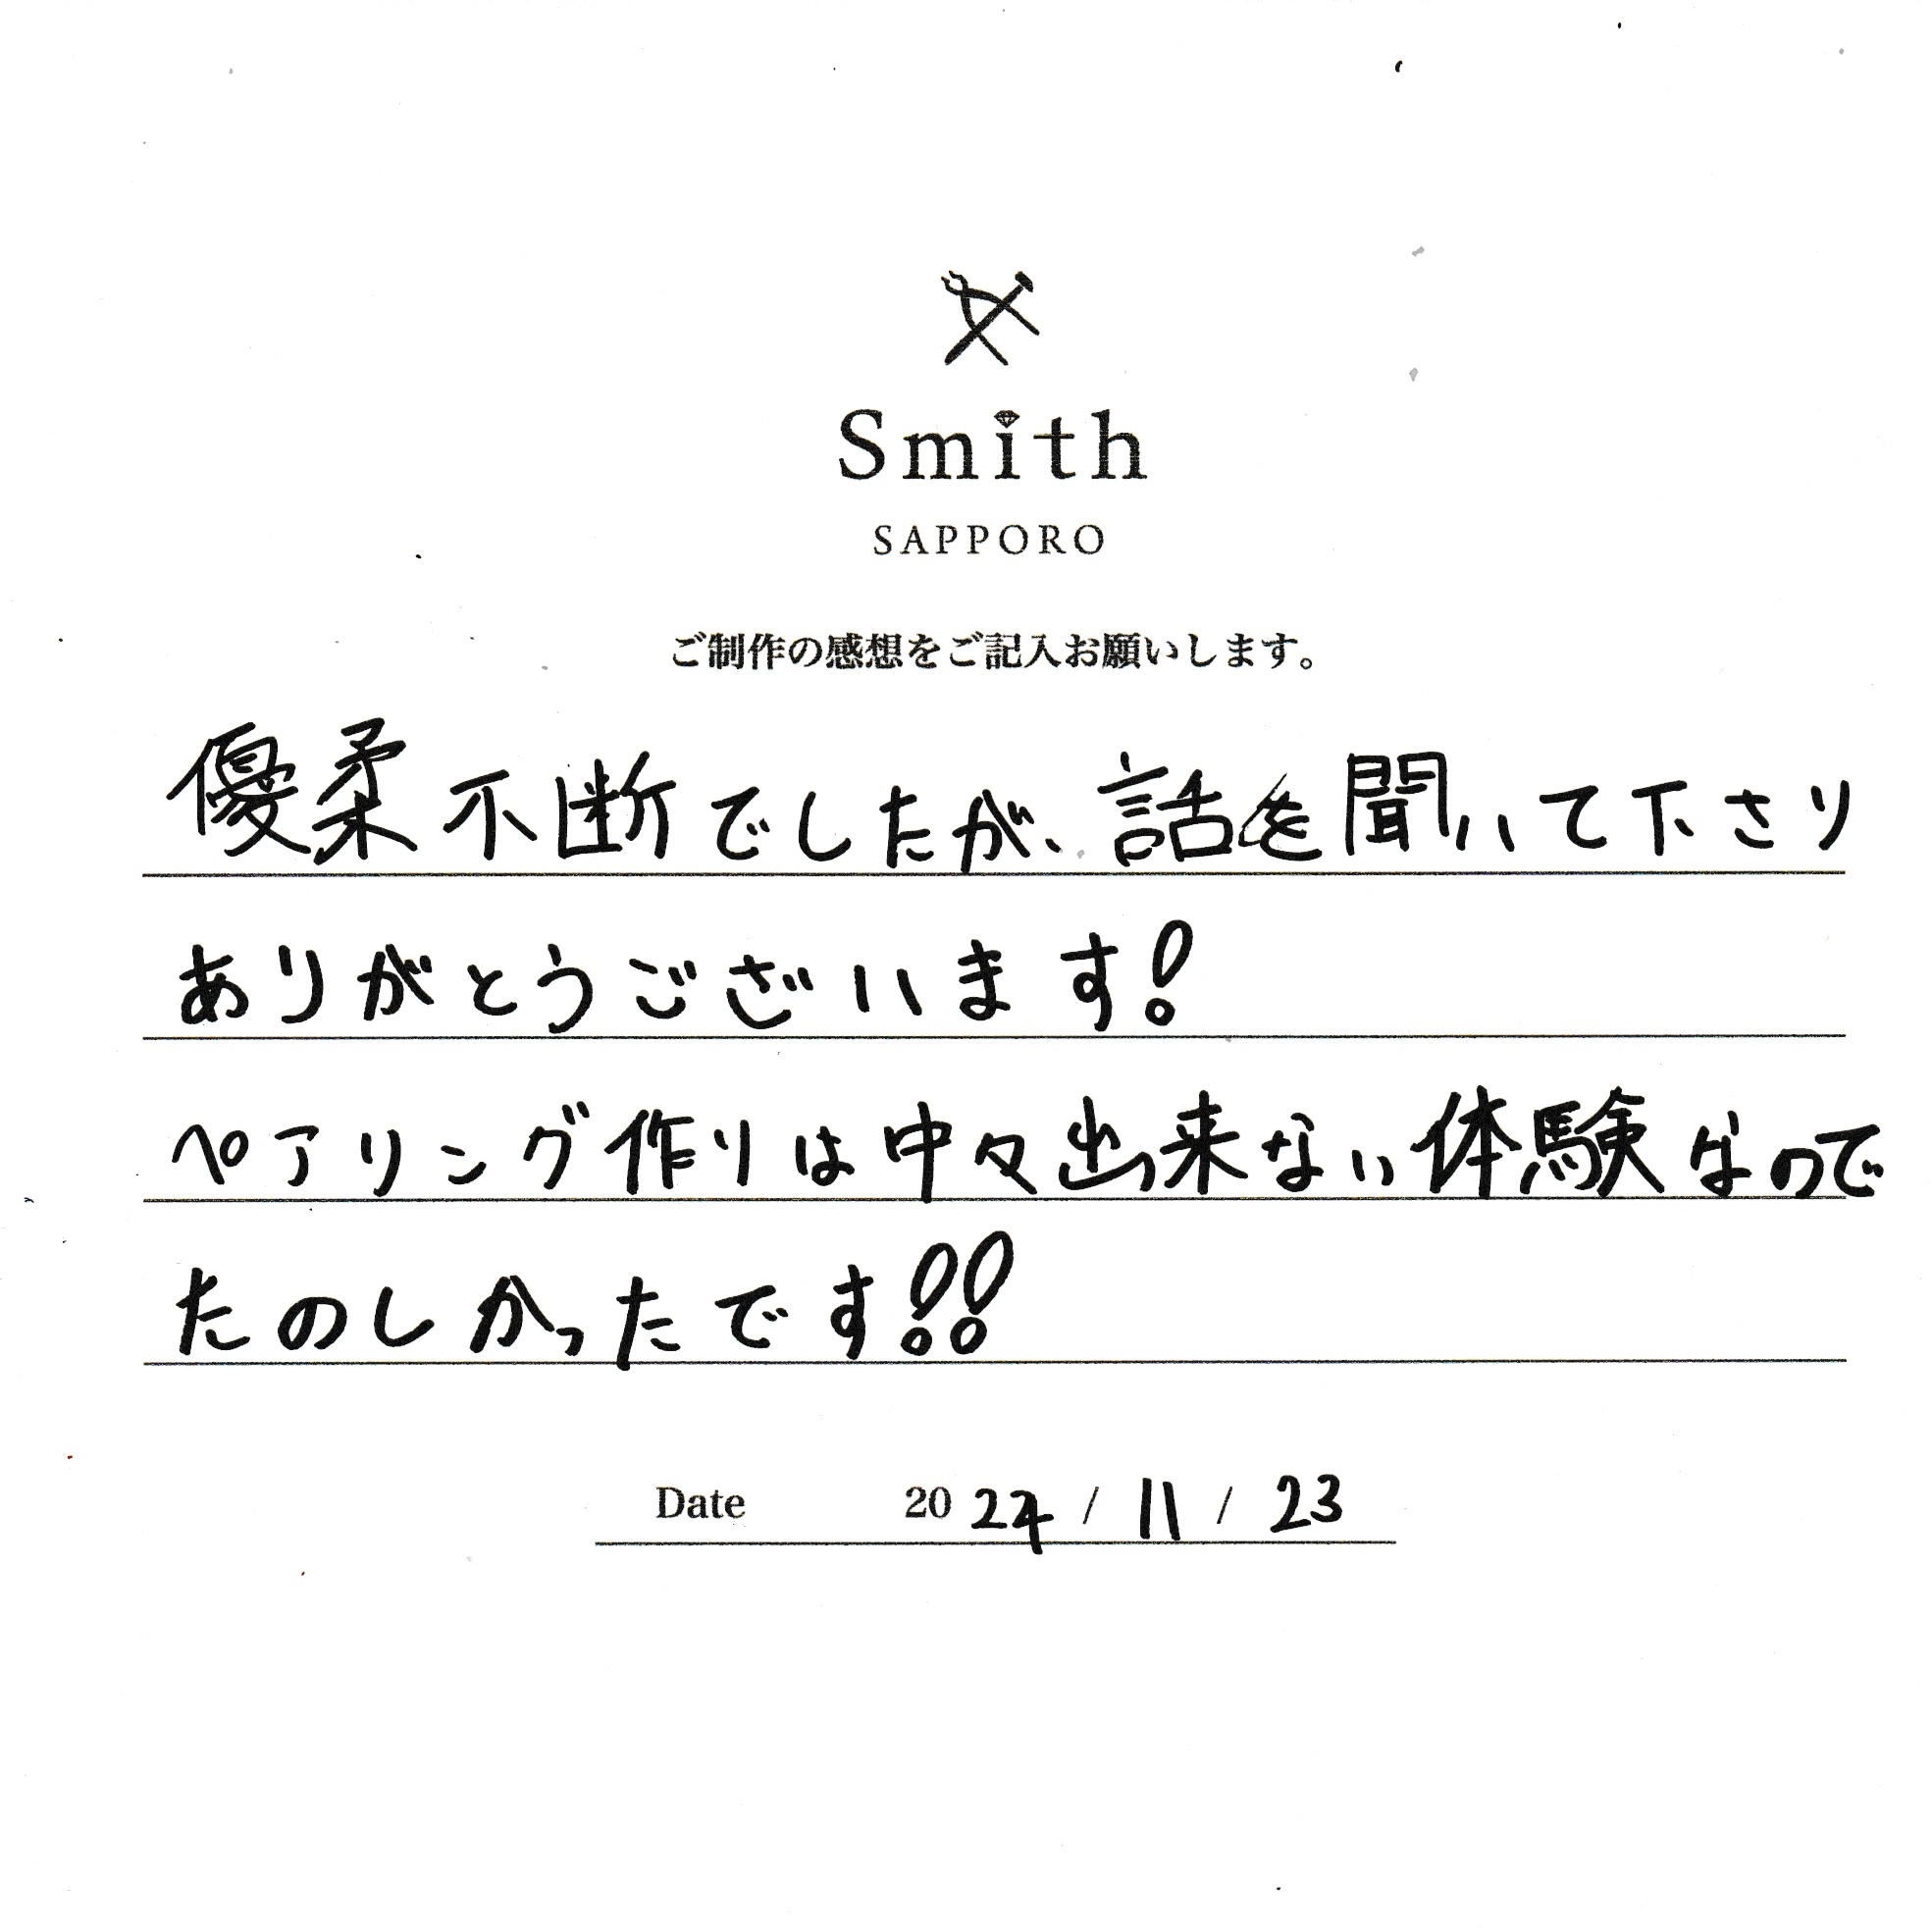 Smith
SAPPORO
ご制作の感想をご記入お願いします。
優柔不断でしたが、話を聞いて下さり
ありがとうございます!
ペアリング作りは中々出来ない体験なので
たのしかったです!!
Date 2024 / 11 / 23